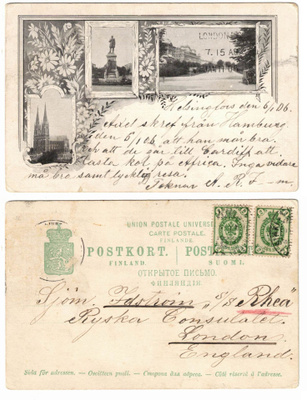 LONDON
7.15 A
Helsingfors den 6/4 06.
Axel skref från Hamburg
den 5/4 06, att han mår bra
och att de går till Cardiff att
lasta kol på Africa. Inga vidare
må bra samt lycklig resa.
UNION POSTALE UNIVERSELLE
CARTE POSTALE.
FINLANDE.
POSTKORT. POSTIKORTTI
FINLAND. SUOMI.
ОТКРЫТОЕ ПИСЬМО.
ФИНЛЯНДІЯ.
Sjöm. Idström, S/S "Rhea"
Ryska Consulatet
London
England.
Sida för adressen. — Osoitteen puoli. — Сторона для адреса. — Côté réservé à l'adresse.